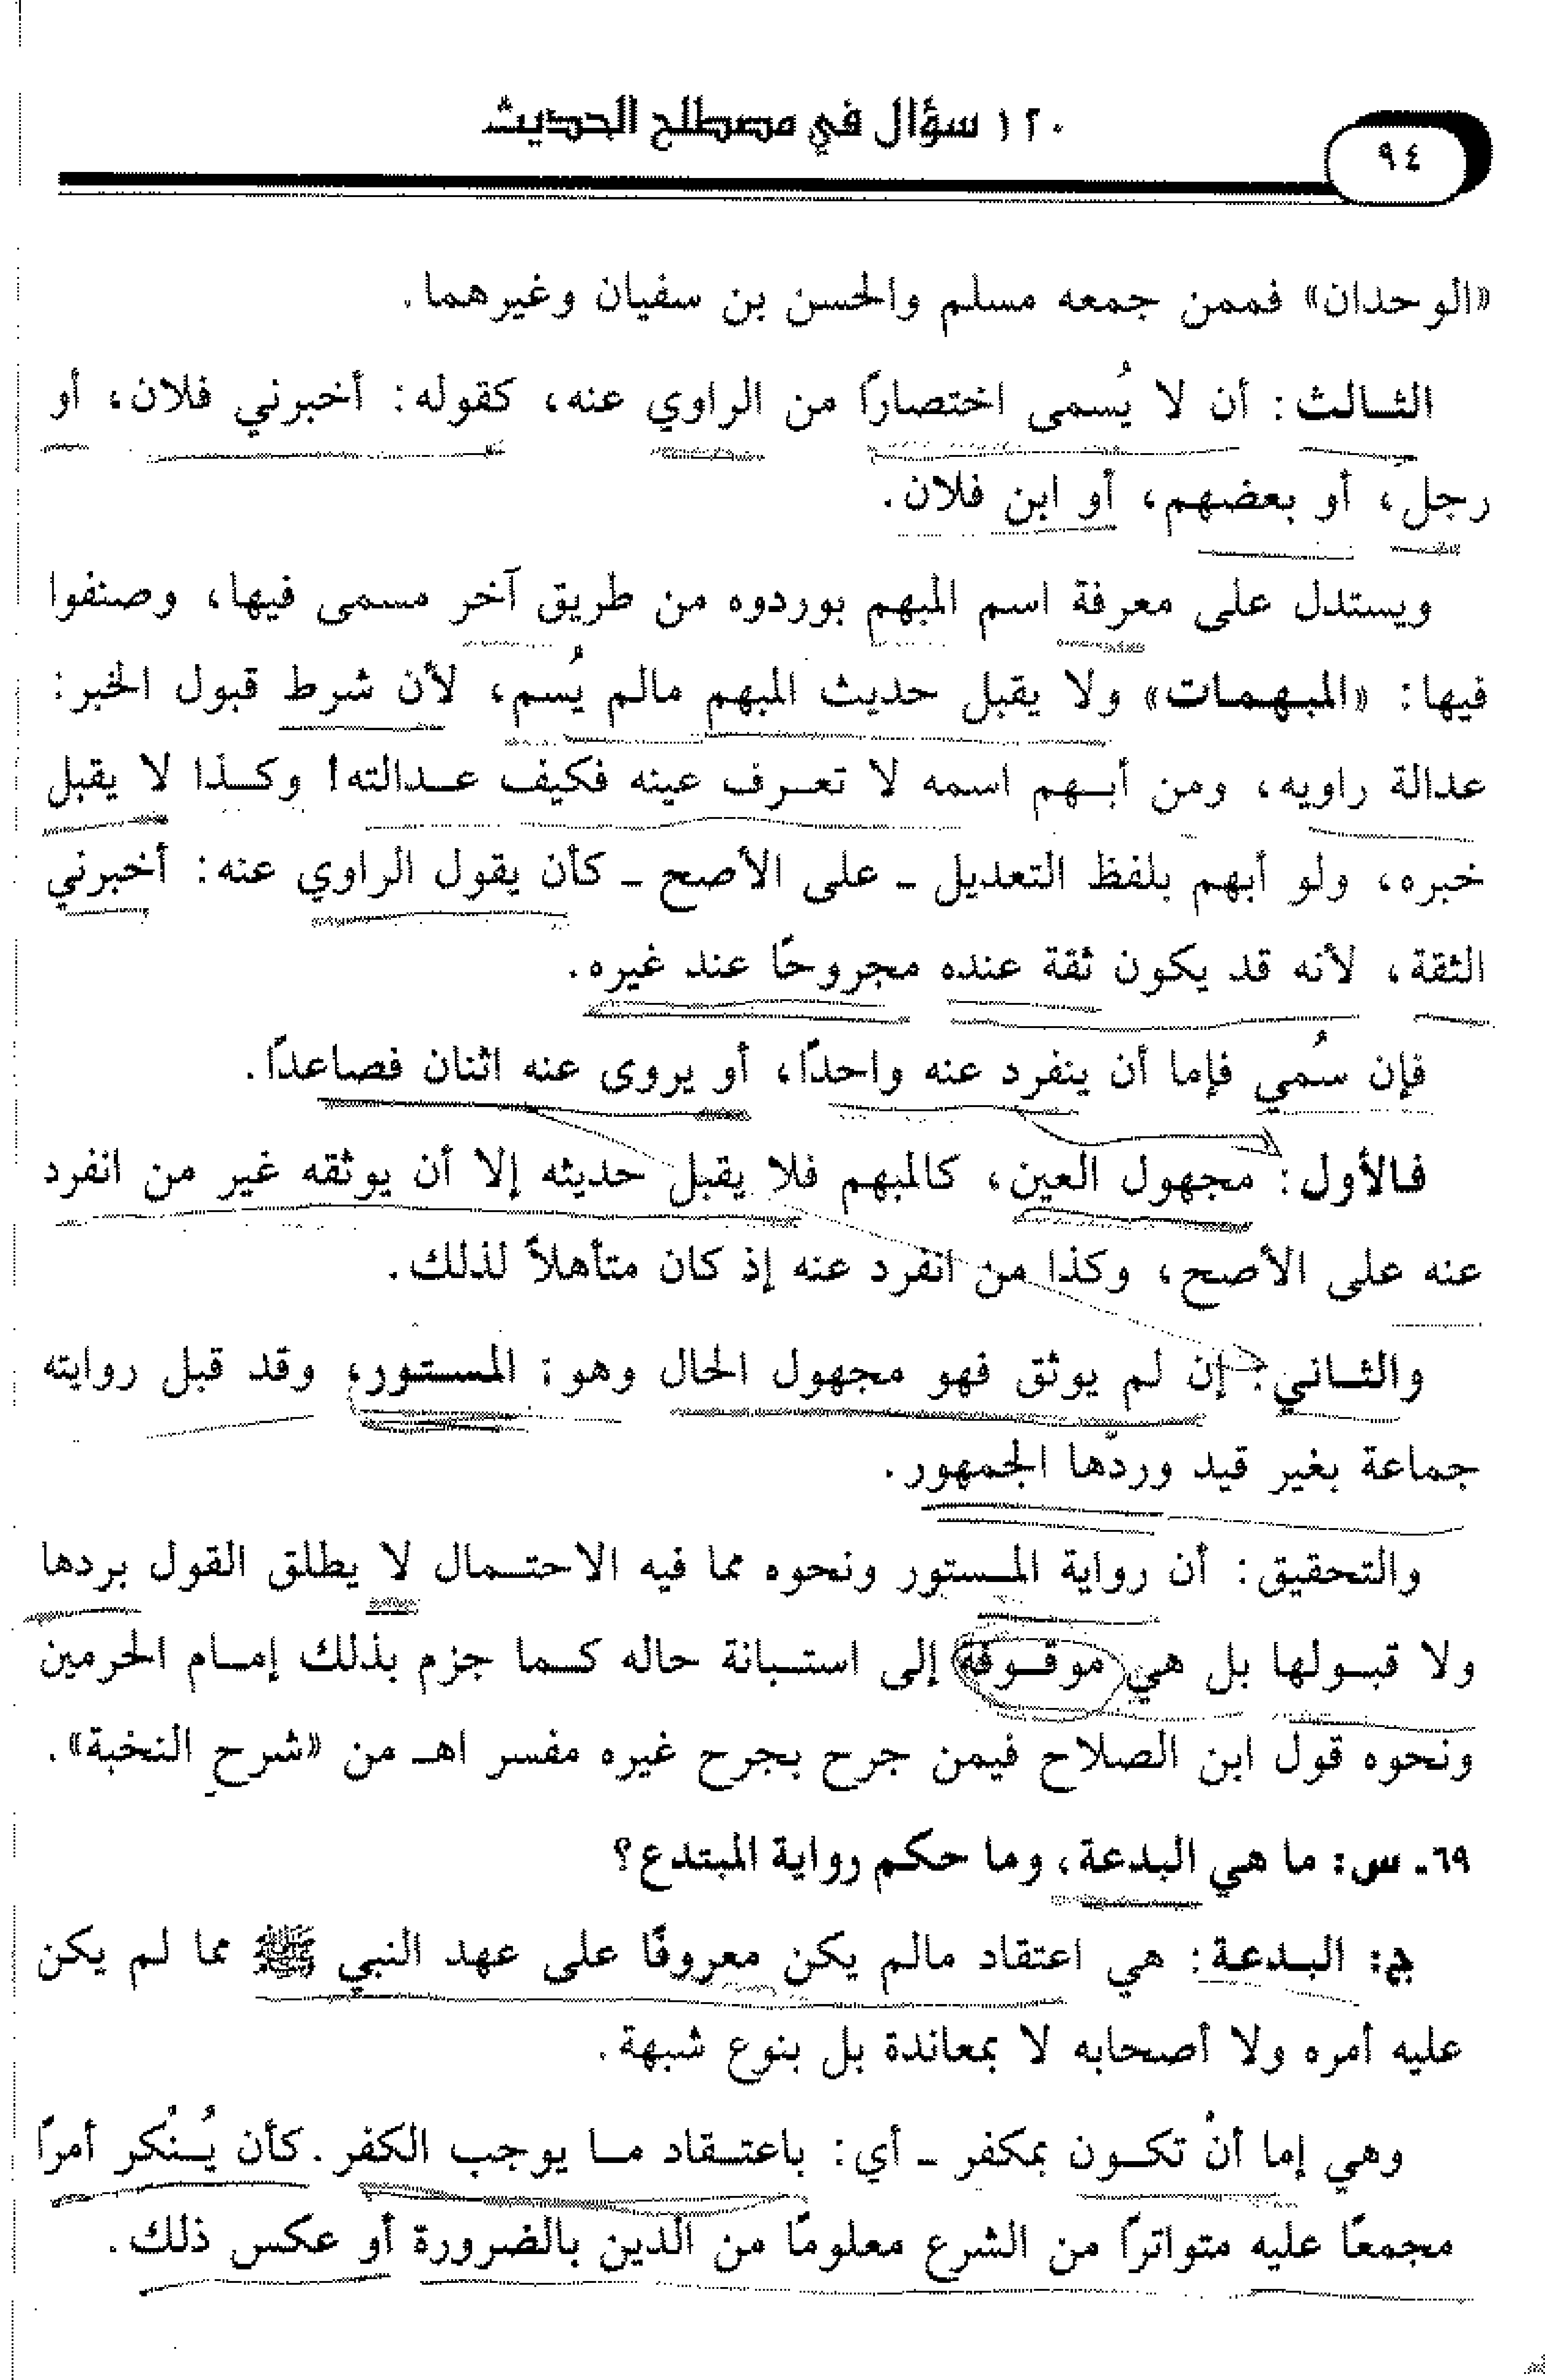 ١٢٠ سؤال في مصطلح الحديث
٩٤
«الوحدان» فممن جمعه مسلم والحسن بن سفيان وغيرهما.
الثالث: أن لا يُسمى اختصارًا من الراوي عنه، كقوله: أخبرني فلان، أو
رجل، أو بعضهم، أو ابن فلان.
ويستدل على معرفة اسم المبهم بوردوه من طريق آخر مسمى فيها، وصنفوا
فيها: «المبهمات» ولا يقبل حديث المبهم مالم يُسم، لأن شرط قبول الخبر:
عدالة راويه، ومن أبهم اسمه لا تعرف عينه فكيف عدالته! وكذا لا يقبل
خبره، ولو أبهم بلفظ التعديل - على الأصح - كأن يقول الراوي عنه: أخبرني
الثقة، لأنه قد يكون ثقة عنده مجروحًا عند غيره.
فإن سُمي فإما أن ينفرد عنه واحدًا، أو يروى عنه اثنان فصاعدًا.
فالأول: مجهول العين، كالمبهم فلا يقبل حديثه إلا أن يوثقه غير من انفرد
عنه على الأصح، وكذا من انفرد عنه إذ كان متأهلاً لذلك.
والثاني: إن لم يوثق فهو مجهول الحال وهو: المستور، وقد قبل روايته
جماعة بغير قيد وردّها الجمهور.
والتحقيق: أن رواية المستور ونحوه مما فيه الاحتمال لا يطلق القول بردها
ولا قبولها بل هي موقوفة إلى استبانة حاله كما جزم بذلك إمام الحرمين
ونحوه قول ابن الصلاح فيمن جرح بجرح غيره مفسر اهـ من «شرح النخبة».
٦٩ـ س: ما هي البدعة، وما حكم رواية المبتدع؟
ج: البدعة: هي اعتقاد مالم يكن معروفًا على عهد النبي ﷺ مما لم يكن
عليه أمره ولا أصحابه لا بمعاندة بل بنوع شبهة.
وهي إما أنْ تكون بمكفر - أي: باعتقاد ما يوجب الكفر. كأن يُنْكر أمرًا
مجمعًا عليه متواترًا من الشرع معلومًا من الدين بالضرورة أو عكس ذلك.